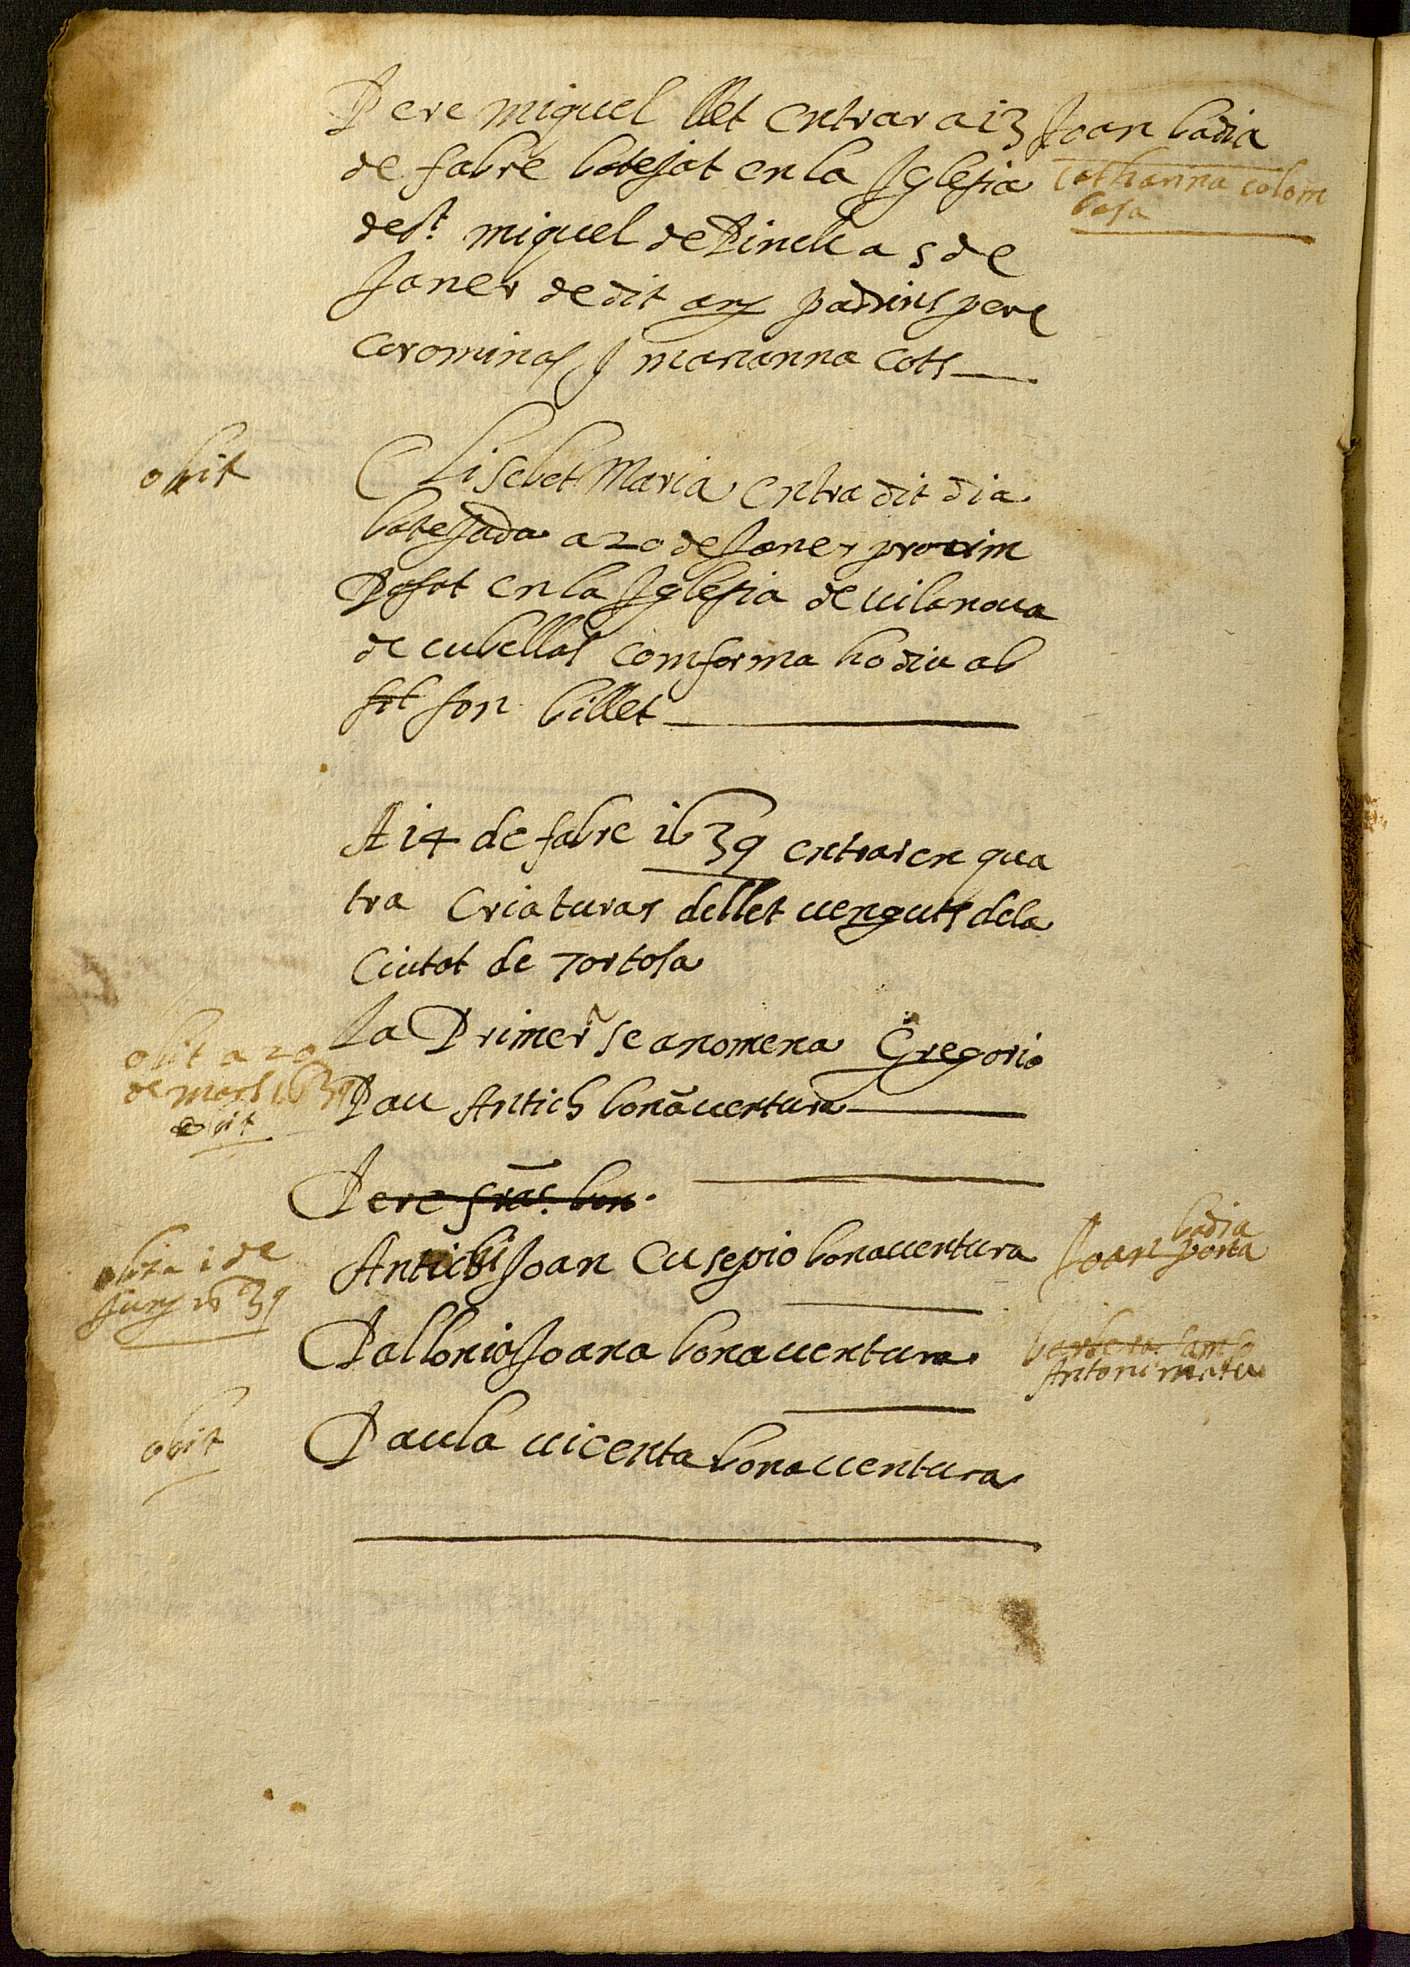 Pere miquel llet entrar a 13
de fabre batejat en la Iglesia
de st. miquel de Pinell a 5 de
Janer de dit any padrins pere
corominas J marianna cots
Joan badia
catharina colom
bosa
obit
Elisebet Maria entra dit dia
batejada a 20 de Janer proxim
Pasat en la Iglesia de vilanova
de cubellas comforma ho diu ab
son billet
A 14 de fabre 1639 entraren qua
tra Criaturas dellet venguts dela
Ciutat de Tortosa
La Primera se anomena Gregorio
Pau Antich bonaventura
obit a 20
de mars 1639
obit
Pere fras. bon.
Antich Joan Cusepio bonaventura
obit a 1 de
Juny 1639
Joan badia
porta
Pallonia Joana bonaventura
Antoni
Paula vicenta bonaventura
obit